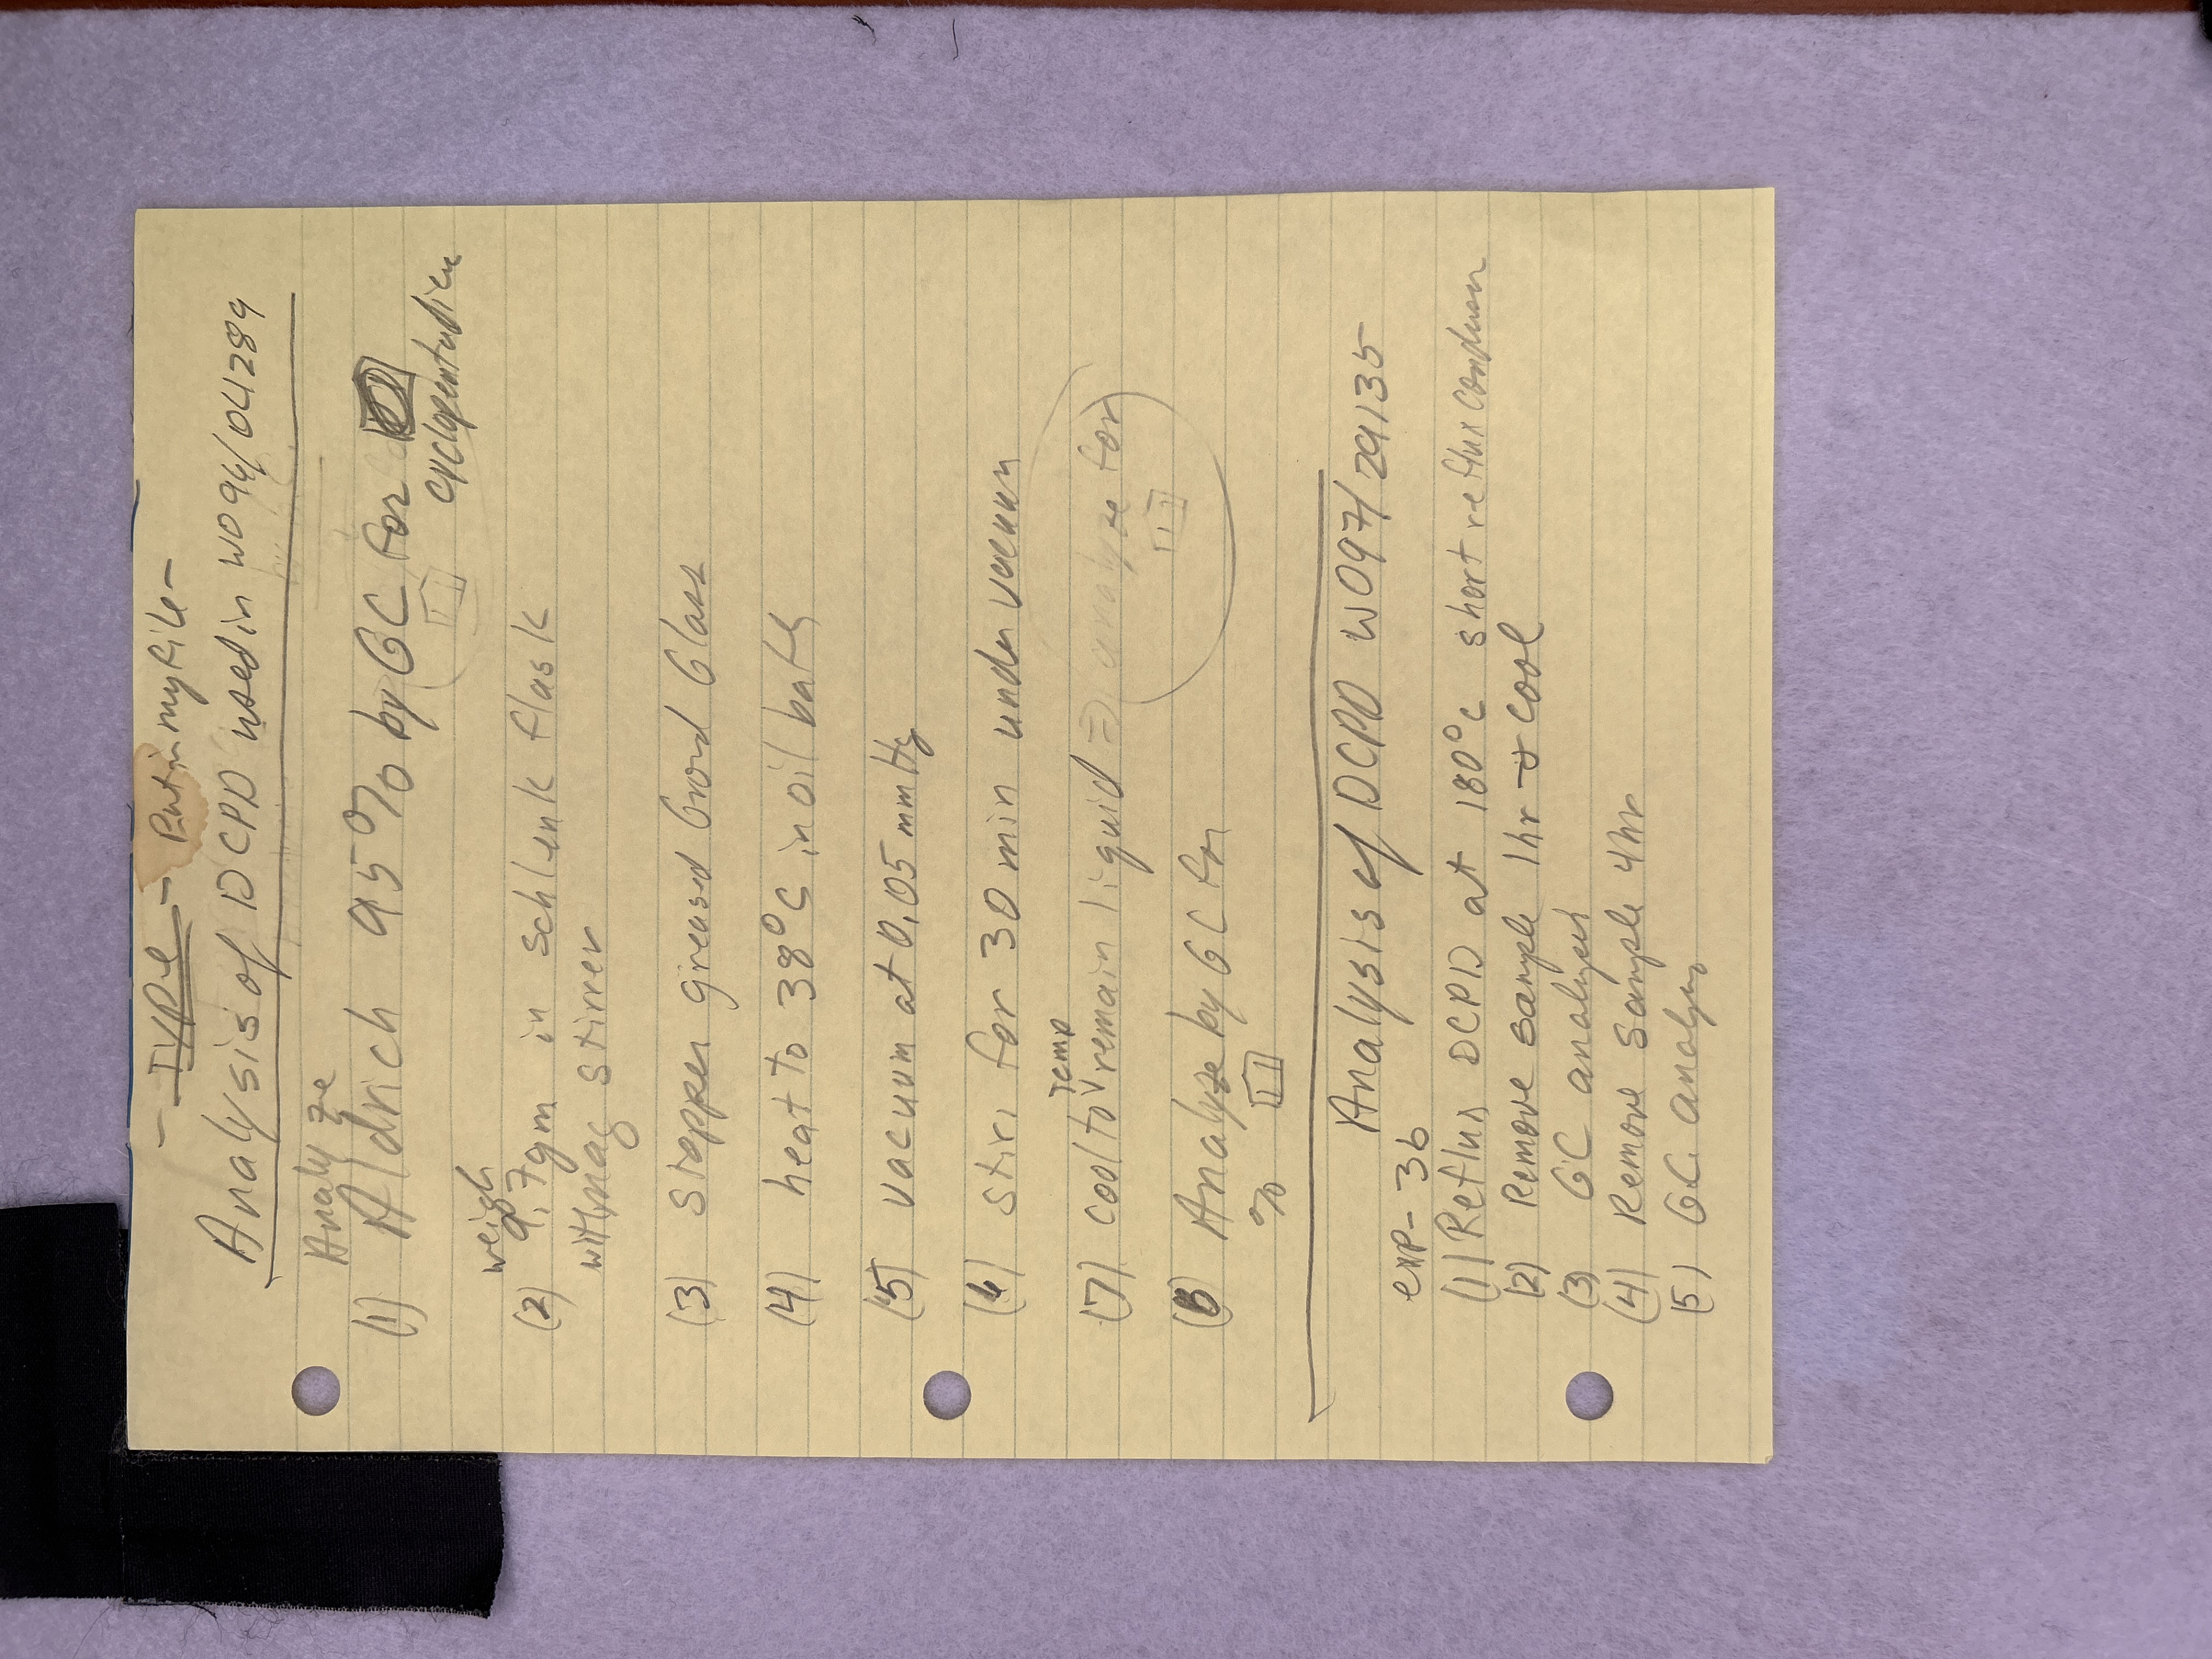 - TYPE - Put in my file -
Analysis of DCPD used in WO 96/04289
Analyze
(1) Aldrich 95% by GC for
cyclopentadiene
weigh
(2) 9.7gm in schlenk flask
with mag stirrer
(3) Stopper greased Grond Glass
(4) heat to 38°C in oil bath
(5) vacuum at 0.05 mm Hg
(6) stir, for 30 min under vacuum
Temp
(7) cool to remain liquid ⇒ analyze for
(8) Analyze by GC for
%
Analysis of DCPD WO97/29135
exp- 3b
(1) Reflux DCPD at 180°C short reflux condenser
(2) Remove sample 1hr → cool
(3) GC analysis
(4) Remove sample 4hr
(5) GC analysis